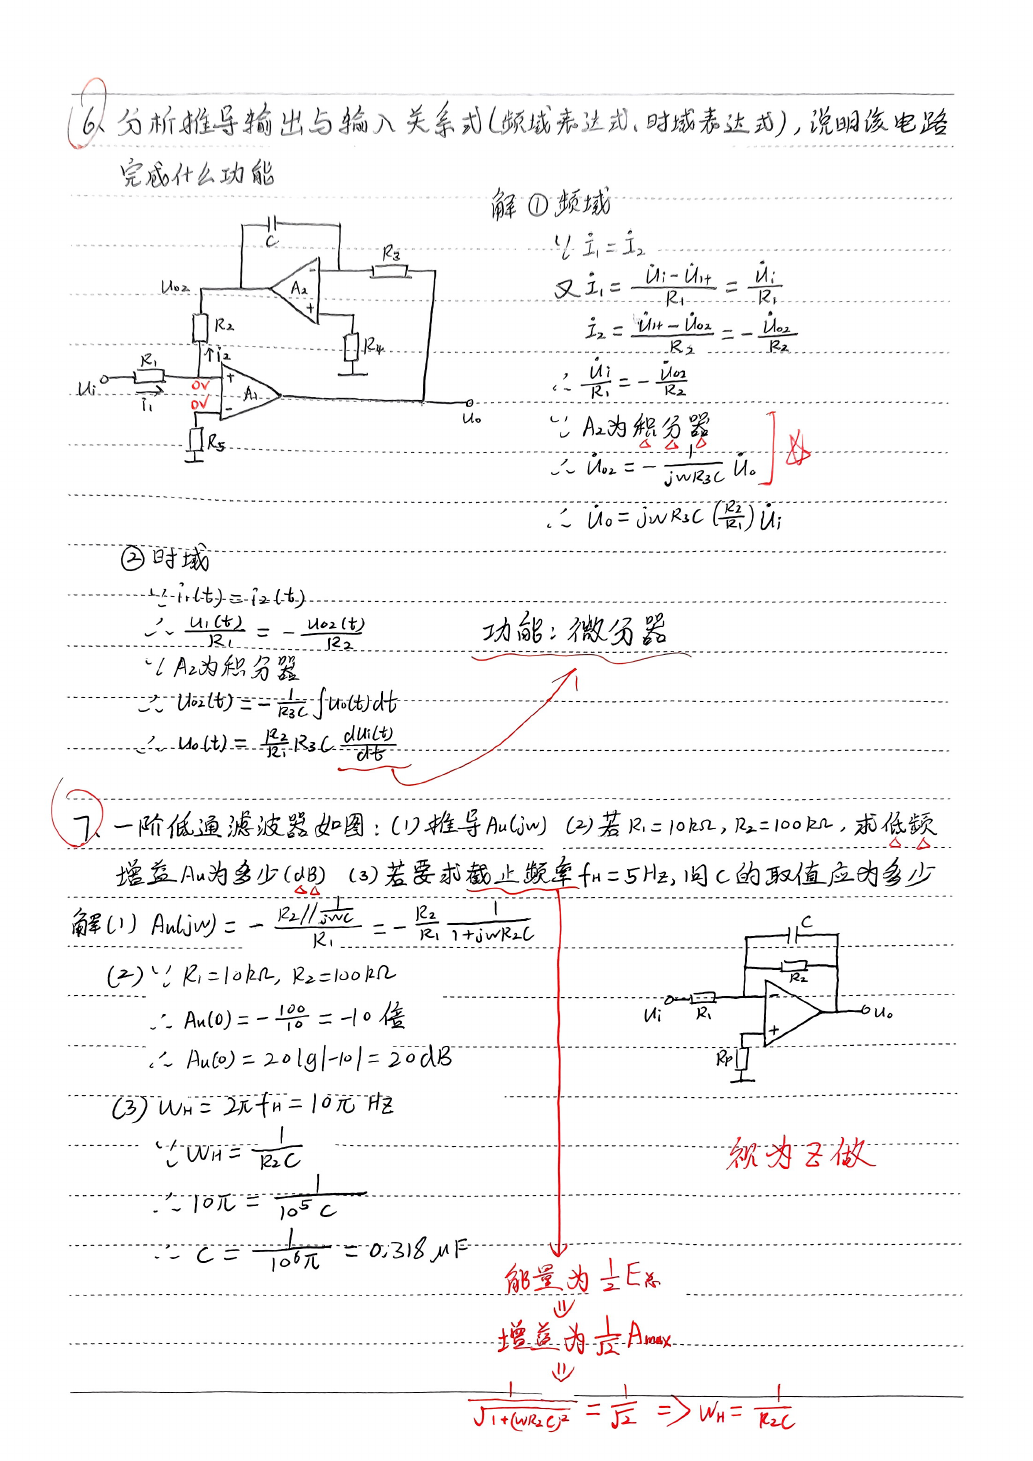 6、分析推导输出与输入关系式(频域表达式、时域表达式),说明该电路
完成什么功能
解 ① 频域
∵ İ₁ = İ₂
又 İ₁ = (U̇i - U̇₁₊)/R₁ = U̇i/R₁
İ₂ = (U̇₁₊ - U̇o₂)/R₂ = - U̇o₂/R₂
∴ U̇i/R₁ = - U̇o₂/R₂
∵ A₂为积分器
∴ U̇o₂ = - 1/(jwR₃C) U̇o
∴ U̇o = jwR₃C (R₂/R₁) U̇i
C
R₃
Uo₂
A₂
-
+
R₂
R₄
↑i₂
R₁
Ui
i₁
0V
0V
+
-
A₁
Uo
R₅
② 时域
∵ i₁(t) = i₂(t)
∴ U₁(t)/R₁ = - Uo₂(t)/R₂
∵ A₂为积分器
∴ Uo₂(t) = - 1/(R₃C) ∫Uo(t)dt
∴ Uo(t) = R₂/R₁ R₃C dUi(t)/dt
功能:微分器
7、一阶低通滤波器如图:(1)推导Au(jw) (2)若R₁=10kΩ, R₂=100kΩ,求低频
增益Au为多少(dB) (3)若要求截止频率fH=5Hz,问C的取值应为多少
解(1) Au(jw) = - (R₂ // 1/(jwC))/R₁ = - R₂/R₁ 1/(1+jwR₂C)
(2) ∵ R₁=10kΩ, R₂=100kΩ
∴ Au(0) = - 100/10 = -10 倍
∴ Au(0) = 20lg|-10| = 20dB
(3) WH = 2πfH = 10π Hz
∵ WH = 1/(R₂C)
∴ 10π = 1/(10⁵ C)
∴ C = 1/(10⁶π) = 0.318 μF
C
R₂
Ui
R₁
-
+
Uo
Rp
视为Z做
能量为 1/2 E总
⇓
增益为 1/√2 Amax
⇓
1/√(1+(WR₂C)²) = 1/√2 ⇒ WH = 1/(R₂C)